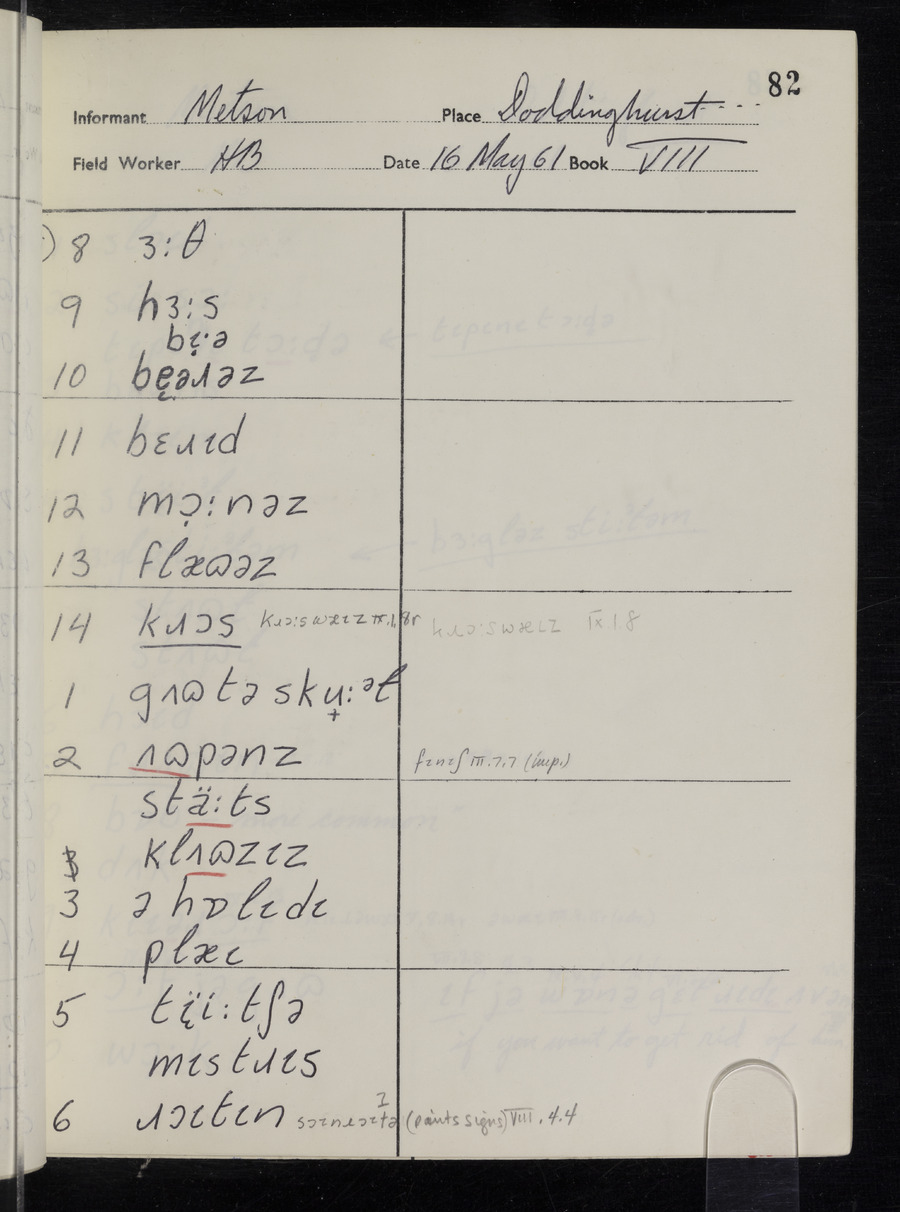 82
Informant Metson Place Doddinghurst
Field Worker HB Date 16 May 61 Book VIII
8 ɜ:θ
9 hɜ:s
bɪ̣:ə
10 bẹəɹəz
11 bɛɹɪd
12 mɔ̣:nəz
13 flæɷəz
14 kɹɔs kɹɔ:swæɪz IX.1.8r kɹɔ:swæɪz IX 1.8
1 gɹɷtəskụ:ət
2 ʌɷpənz fɪnɪʃ III.7.7 (imp.)
stä:ts
klʌɷzɪz
3 ə hɒlɪdɪ
4 plæɪ
5 tɪ̣̈:tʃə
mɪstɹɪs
6 ɹɔɪtɪn (paints signs) VIII.4.4